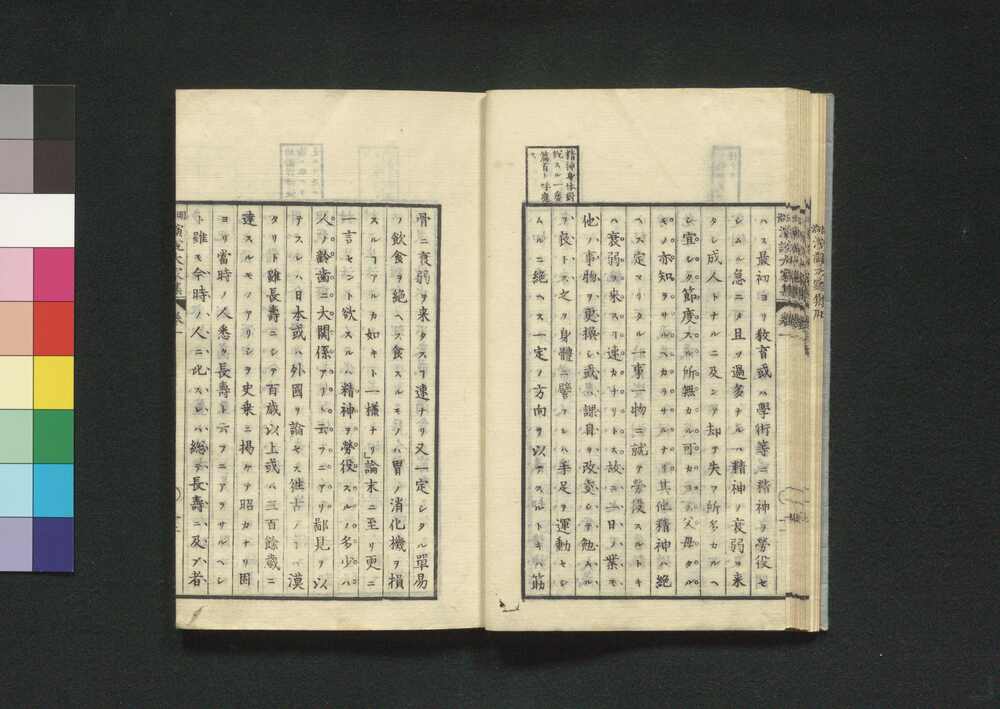 精神身体對
ハス最初ヨリ教育或ハ學術等ニ精神ヲ勞役セ
シムル急ニ〆且ツ過多ナレハ精神ノ衰弱ヲ来
タシ成人トナルニ及ンテ却テ失フ所多カルヘ
シ宜シク節度スル所無カル可カヨス父母タル
モノ亦知ラサルヘカラサルナリ其他精神ハ絶
ヘス定マリタル一事一物ニ就テ勞役スルトキ
ハ衰弱ヲ来スリ速カナリトス故ニ一日ノ業モ
他ノ事物ヲ更換シ或ハ課目ヲ改変シテ勉ムル
ヲ良トス之ヲ身體ニ譬フレハ手足ヲ運動セシ
ムルニ絶ヘス一定ノ方向ヲ以テスルトキハ筋
骨ニ衰弱ヲ来タスヿ速ナリ又一定シタル單易
ノ飲食ヲ絶ヘス食スルモノハ胃ノ消化機ヲ損
スルヿアルカ如キト一様ナリ」論末ニ至リ更ニ
一言セント欲スルハ精神ヲ勞役スルノ多少ハ
人ノ齢歯ニ大関係アリト云フニアリ鄙見ヲ以
テスレハ日本或ハ外國ヲ論セス往古ノヿハ漠
タリト雖長壽ニシテ百歳以上或ハ三百餘歳ニ
達スルモノアリシヲ史乗ニ掲ケテ昭カナリ固
ヨリ當時ノ人悉ク長壽ト云フニアラサルヘシ
ト雖モ今時ノ人ニ比スレハ總テ長壽ニ及フ者